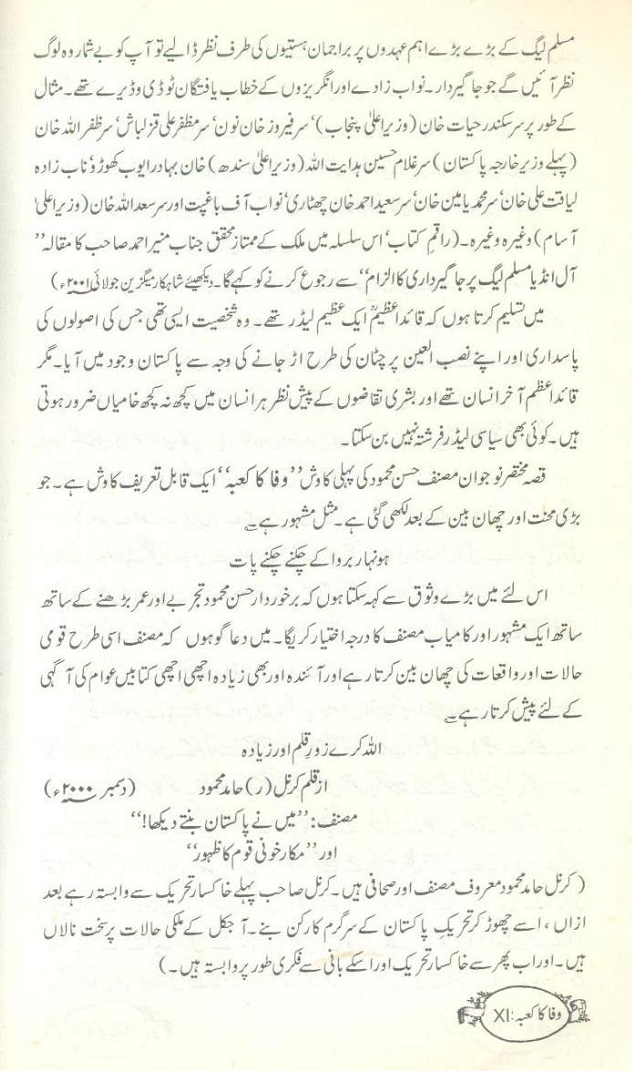 مسلم لیگ کے بڑے بڑے اہم عہدوں پر براجمان ہستیوں کی طرف نظر ڈالیے تو آپ کو بے شمار وہ لوگ
نظر آئیں گے جو جاگیردار۔نواب زادے اور انگریزوں کے خطاب یافتگان ٹوڈی وڈیرے تھے۔مثال
کے طور پر سر سکندر حیات خان (وزیراعلیٰ پنجاب)‘ سر فیروز خان نون‘ سر مظفر علی قزلباش‘ سر ظفر اللہ خان
(پہلے وزیر خارجہ پاکستان) سر غلام حسین ہدایت اللہ (وزیراعلیٰ سندھ) خان بہادر ایوب کھوڑو‘ ناب زادہ
لیاقت علی خان‘ سر محمد یامین خان‘ سر سعید احمد خان چھتاری‘ نواب آف باغپت اور سر سعد اللہ خان (وزیراعلیٰ
آسام) وغیرہ وغیرہ۔(راقم کتاب‘ اس سلسلہ میں ملک کے ممتاز محقق جناب منیر احمد صاحب کا مقالہ ”
آل انڈیا مسلم لیگ پر جاگیرداری کا الزام“ سے رجوع کرنے کو کہے گا۔دیکھیئے شاہکار میگزین جولائی ۲۰۰۱ء)
میں تسلیم کرتا ہوں کہ قائداعظمؒ ایک عظیم لیڈر تھے۔ وہ شخصیت ایسی تھی جس کی اصولوں کی
پاسداری اور اپنے نصب العین پر چٹان کی طرح اڑ جانے کی وجہ سے پاکستان وجود میں آیا۔مگر
قائداعظم آخر انسان تھے اور بشری تقاضوں کے پیش نظر ہر انسان میں کچھ نہ کچھ خامیاں ضرور ہوتی
ہیں۔کوئی بھی سیاسی لیڈر فرشتہ نہیں بن سکتا۔
قصہ مختصر نوجوان مصنف حسن محمود کی پہلی کاوش ”وفا کا کعبہ“ ایک قابل تعریف کاوش ہے۔جو
بڑی محنت اور چھان بین کے بعد لکھی گئی ہے۔مثل مشہور ہے ؎
ہونہار بروا کے چکنے چکنے پات
اس لئے میں بڑے وثوق سے کہہ سکتا ہوں کہ برخوردار حسن محمود تجربے اور عمر بڑھنے کے ساتھ
ساتھ ایک مشہور اور کامیاب مصنف کا درجہ اختیار کریگا۔میں دعا گو ہوں کہ مصنف اسی طرح قومی
حالات اور واقعات کی چھان بین کرتا رہے اور آئندہ اور بھی زیادہ اچھی اچھی کتابیں عوام کی آگہی
کے لئے پیش کرتا رہے ؎
اللہ کرے زور قلم اور زیادہ
از قلم کرنل (ر) حامد محمود (دسمبر ۲۰۰۰ء)
مصنف: ”میں نے پاکستان بنتے دیکھا!“
اور ”مکار خونی قوم کا ظہور“
( کرنل حامد محمود معروف مصنف اور صحافی ہیں۔کرنل صاحب پہلے خاکسار تحریک سے وابستہ رہے بعد
ازاں ، اسے چھوڑ کر تحریکِ پاکستان کے سرگرم کارکن بنے۔آجکل کے ملکی حالات پر سخت نالاں
ہیں۔اور اب پھر سے خاکسار تحریک اور اسکے بانی سے فکری طور پر وابستہ ہیں۔)
وفا کا کعبہ: XI